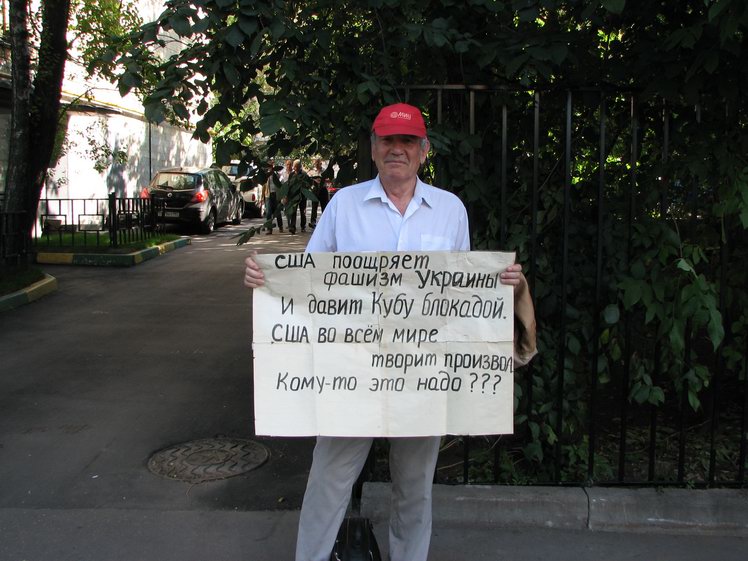 США поощряет
фашизм Украины
И давит Кубу блокадой.
США во всём мире
творит произвол
Кому-то это надо ???